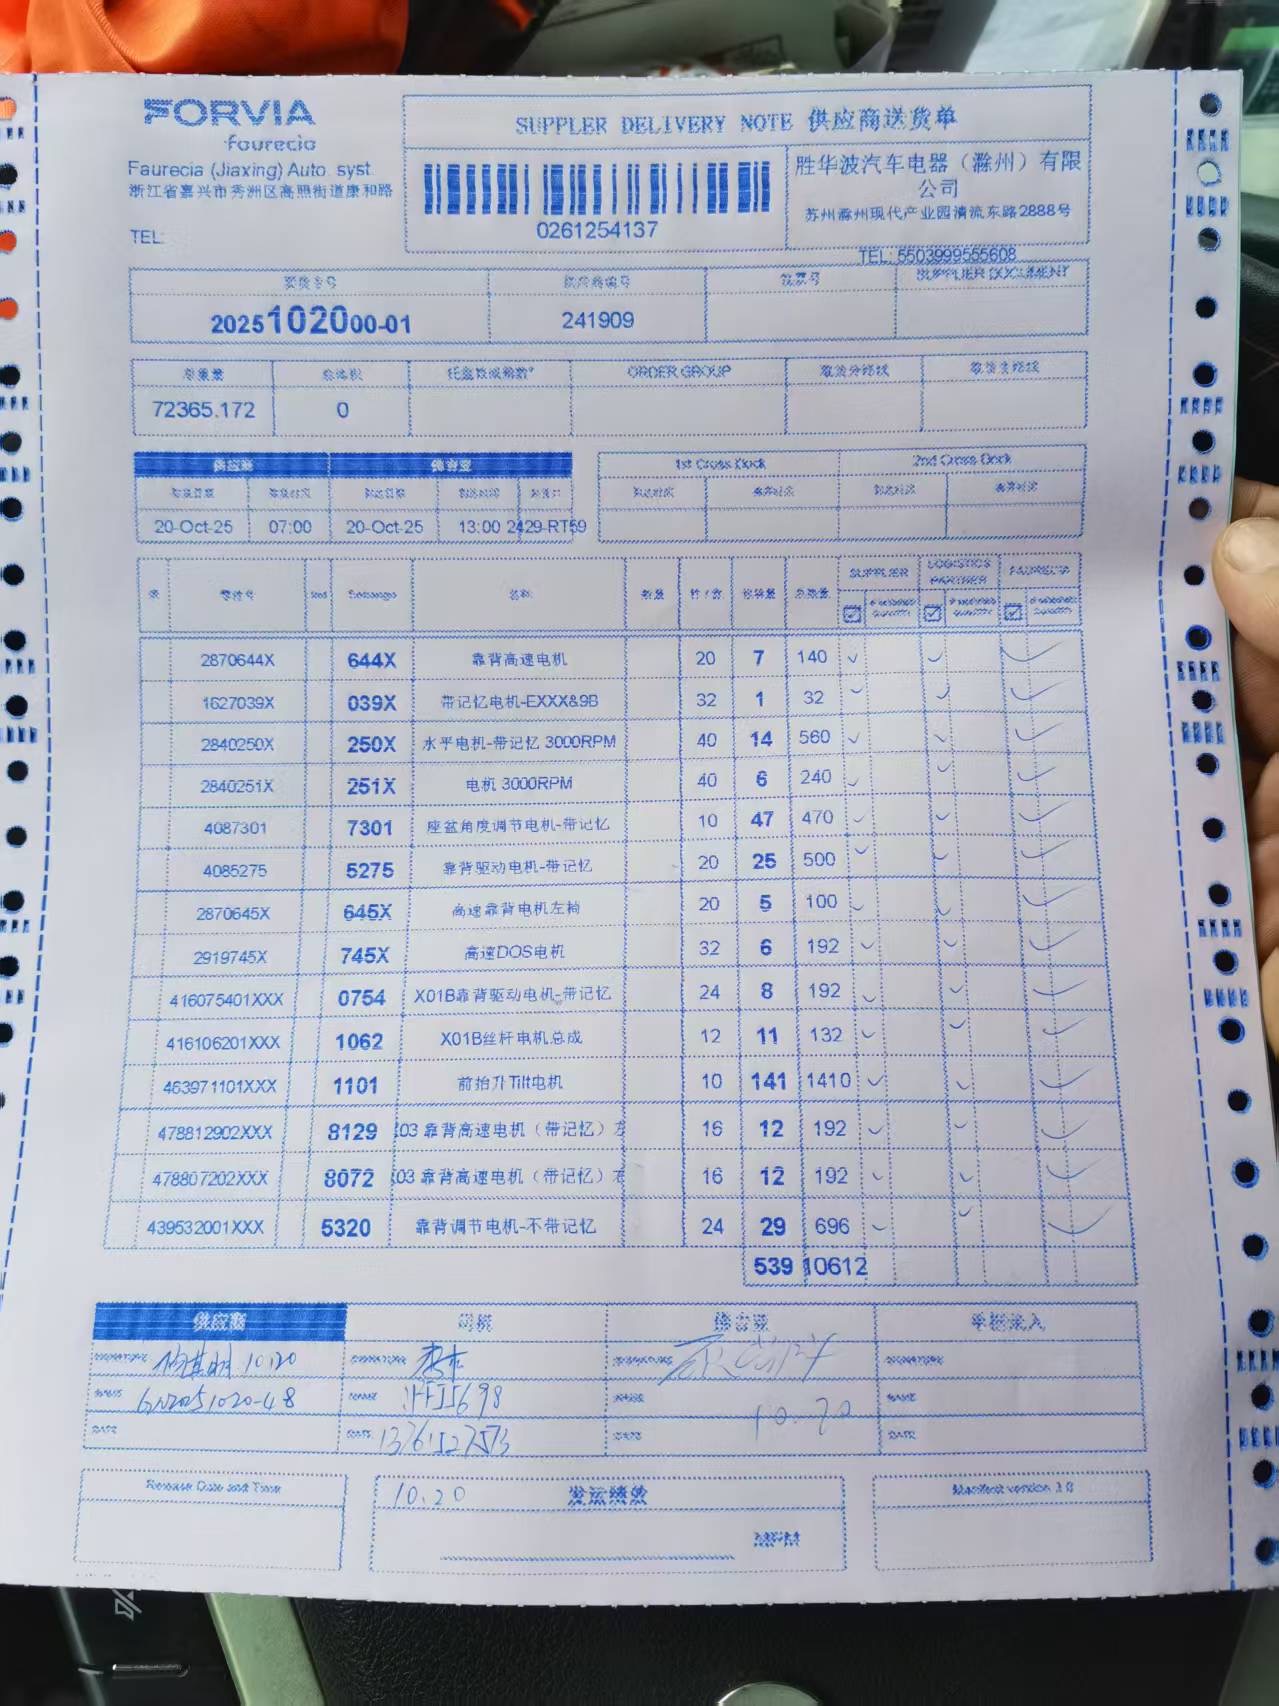 FORVIA
faurecia
Faurecia (Jiaxing) Auto. syst.
浙江省嘉兴市秀洲区高照街道康和路
TEL:
SUPPLER DELIVERY NOTE 供应商送货单
0261254137
胜华波汽车电器（滁州）有限
公司
苏州滁州现代产业园清流东路2888号
TEL: 5503999555608
SUPPLIER DOCUMENT
2025102000-01 241909
ORDER GROUP
72365.172 0
供应商
1st Cross Dock 2nd Cross Dock
20-Oct-25 07:00 20-Oct-25 13:00 2429-RT59
SUPPLIER LOGISTICS PARTNER FAURECIA
零件号 名称 数量
2870644X 644X 靠背高速电机 20 7 140
1627039X 039X 带记忆电机-EXXX&9B 32 1 32
2840250X 250X 水平电机-带记忆 3000RPM 40 14 560
2840251X 251X 电机 3000RPM 40 6 240
4087301 7301 座盆角度调节电机-带记忆 10 47 470
4085275 5275 靠背驱动电机-带记忆 20 25 500
2870645X 645X 高速靠背电机左椅 20 5 100
2919745X 745X 高速DOS电机 32 6 192
416075401XXX 0754 X01B靠背驱动电机-带记忆 24 8 192
416106201XXX 1062 X01B丝杆电机总成 12 11 132
463971101XXX 1101 前抬升Tilt电机 10 141 1410
478812902XXX 8129 03 靠背高速电机（带记忆）左 16 12 192
478807202XXX 8072 03 靠背高速电机（带记忆）右 16 12 192
439532001XXX 5320 靠背调节电机-不带记忆 24 29 696
539 10612
供应商 司机
SIGNATURE 10.20 SIGNATURE SIGNATURE SIGNATURE
NAME GN20251020-48 NAME NAME NAME
DATE DATE DATE 10.20 DATE
Release Date and Time 10.20 发运绩效 Manifest version 1.0